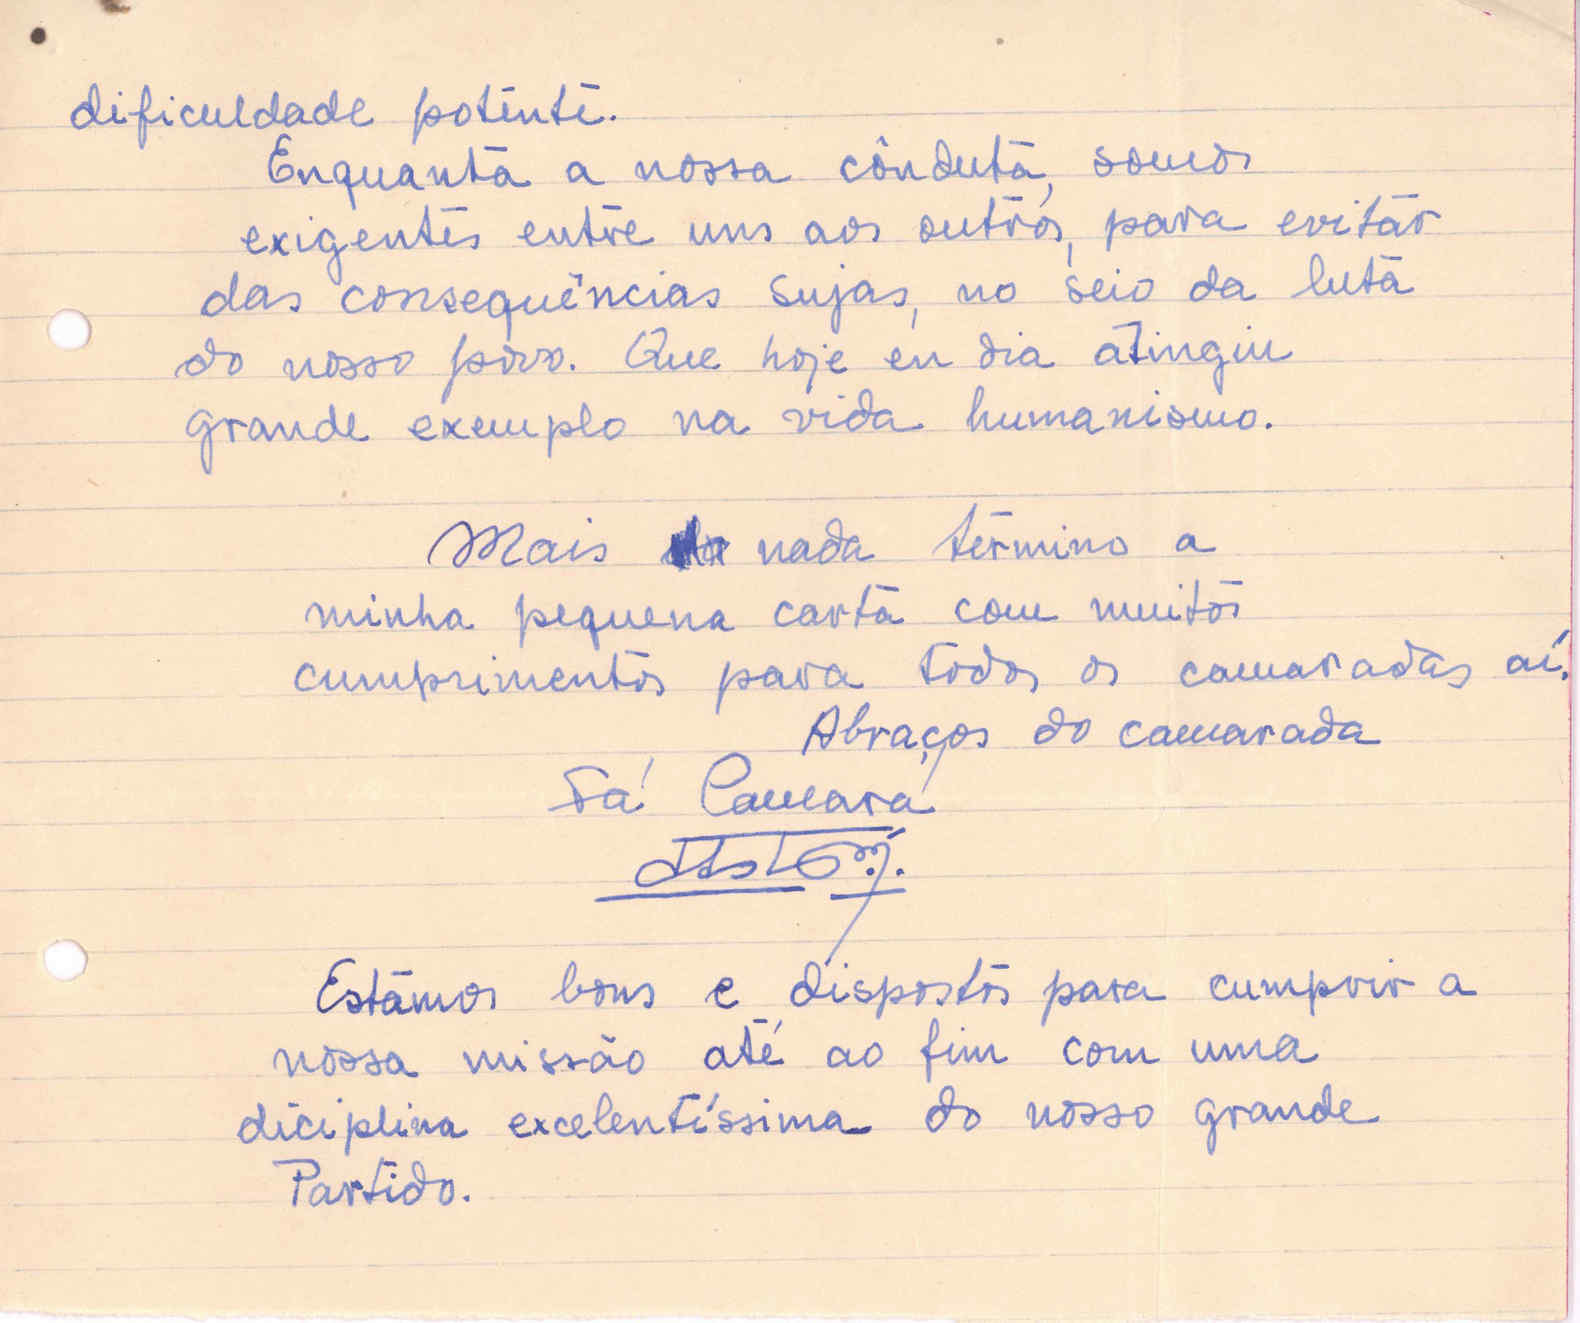 dificuldade potente.
Enquanta a nossa cônduta, somos
exigentes entre uns aos outros, para evitar
das consequências sujas, no seio da luta
do nosso povo. Que hoje en dia atingiu
grande exemplo na vida humanismo.
Mais nada termino a
minha pequena carta com muitos
cumprimentos para todos os camaradas aí.
Abraços do camarada
Camará
Estamos bons e dispostos para cumprir a
nossa missão até ao fim com uma
diciplina excelentíssima do nosso grande
Partido.